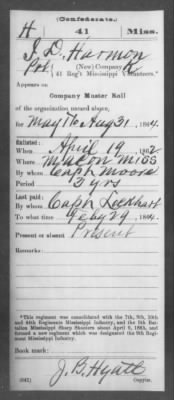 (Confederate.)
H 41 Miss.
J. D. Harmon
Pvt, (New) Company K,
41 Reg't Mississippi Volunteers.*
Appears on
Company Muster Roll
of the organization named above,
for May 1 to Aug 31, 1864.
Enlisted:
When April 19, 1862.
Where Macon Miss
By whom Capt Moore
Period 3 yrs
Last paid:
By whom Capt Lockhart
To what time Feby 29, 1864.
Present or absent Present
Remarks:
*This regiment was consolidated with the 7th, 9th, 10th
and 44th Regiments Mississippi Infantry, and the 9th Bat-
talion Mississippi Sharp Shooters about April 9, 1865, and
formed a new regiment which was designated the 9th Regi-
ment Mississippi Infantry.
Book mark:
J. B. Hyatt
(642) Copyist.